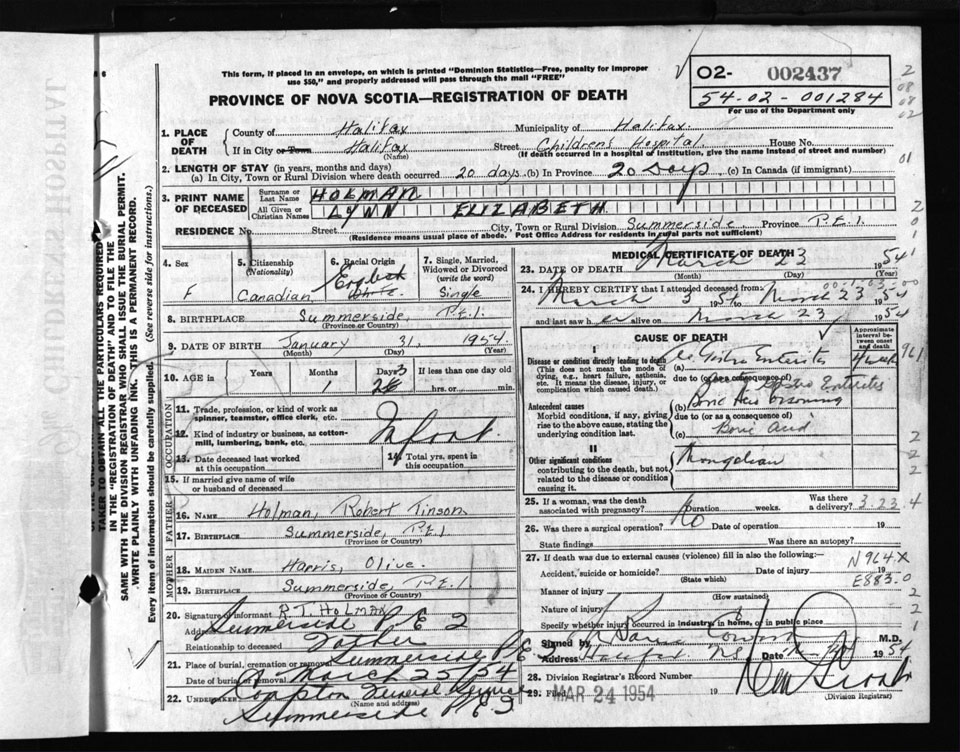 This form, if placed in an envelope, on which is printed "Dominion Statistics—Free, penalty for improper
use $50," and properly addressed will pass through the mail "FREE"
PROVINCE OF NOVA SCOTIA—REGISTRATION OF DEATH
02- 002437
54-02-001284
For use of the Department only
1. PLACE OF DEATH
County of Halifax Municipality of Halifax
If in City or Town Halifax Street Childrens Hospital House No.
(Name) (If death occurred in a hospital or institution, give the name instead of street and number)
2. LENGTH OF STAY (in years, months and days)
(a) In City, Town or Rural Division where death occurred 20 days (b) In Province 20 Days (c) In Canada (if immigrant)
3. PRINT NAME OF DECEASED
Surname or Last Name HOLMAN
All Given or Christian Names LYNN ELIZABETH
RESIDENCE No. Street City, Town or Rural Division Summerside Province P.E.I.
(Residence means usual place of abode. Post Office Address for residents in rural parts not sufficient)
4. Sex
F
5. Citizenship (Nationality)
Canadian
6. Racial Origin
English
White
7. Single, Married, Widowed or Divorced (write the word)
Single
8. BIRTHPLACE Summerside, P.E.I.
(Province or Country)
9. DATE OF BIRTH January 31, 1954
(Month) (Day) (Year)
10. AGE in Years Months Days If less than one day old
1 hrs. or min.
OCCUPATION
11. Trade, profession, or kind of work as spinner, teamster, office clerk, etc.
Infant
12. Kind of industry or business, as cotton-mill, lumbering, bank, etc.
13. Date deceased last worked at this occupation
14. Total yrs. spent in this occupation
15. If married give name of wife or husband of deceased
FATHER
16. NAME Holman, Robert Tinson
17. BIRTHPLACE Summerside, P.E.I.
(Province or Country)
MOTHER
18. MAIDEN NAME Harris, Olive
19. BIRTHPLACE Summerside, P.E.I.
(Province or Country)
20. Signature of informant R.T. HOLMAN
Address Summerside P E I
Relationship to deceased Father
21. Place of burial, cremation or removal Summerside P.E.I.
Date of burial or removal March 25/54
22. UNDERTAKER Compton Funeral Service
(Name and address)
Summerside P E I
MEDICAL CERTIFICATE OF DEATH
23. DATE OF DEATH March 23 1954
(Month) (Day) (Year)
24. I HEREBY CERTIFY that I attended deceased from:
March 3 1954 to March 23 1954
and last saw her alive on March 23 1954
CAUSE OF DEATH
Approximate interval between onset and death
I
Disease or condition directly leading to death
(This does not mean the mode of dying, e.g., heart failure, asthenia, etc. It means the disease, injury, or complication which caused death.)
(a) Gastro Enteritis
due to (or as a consequence of)
Antecedent causes
Morbid conditions, if any, giving rise to the above cause, stating the underlying condition last.
(b) Boric Acid Poisoning
due to (or as a consequence of)
(c) Boric Acid
II
Other significant conditions contributing to the death, but not related to the disease or condition causing it.
Mongolian
25. If a woman, was the death associated with pregnancy? No Duration weeks. Was there a delivery?
3.23.4
26. Was there a surgical operation? Date of operation 19
State findings Was there an autopsy?
27. If death was due to external causes (violence) fill in also the following:—
Accident, suicide or homicide? Date of injury 19
(State which)
N964X
E883.0
Manner of injury
(How sustained)
Nature of injury
Specify whether injury occurred in industry, in home, or in public place
Signed by M.D.
Address Halifax N.S. Date 1954
28. Division Registrar's Record Number
29. Filed MAR 24 1954 19
(Division Registrar)
TAKEN TO OBTAIN ALL THE PARTICULARS REQUIRED
IN THE "REGISTRATION OF DEATH" AND TO FILE THE
SAME WITH THE DIVISION REGISTRAR WHO SHALL ISSUE THE BURIAL PERMIT.
WRITE PLAINLY WITH UNFADING INK. THIS IS A PERMANENT RECORD.
Every item of information should be carefully supplied. (See reverse side for instructions.)